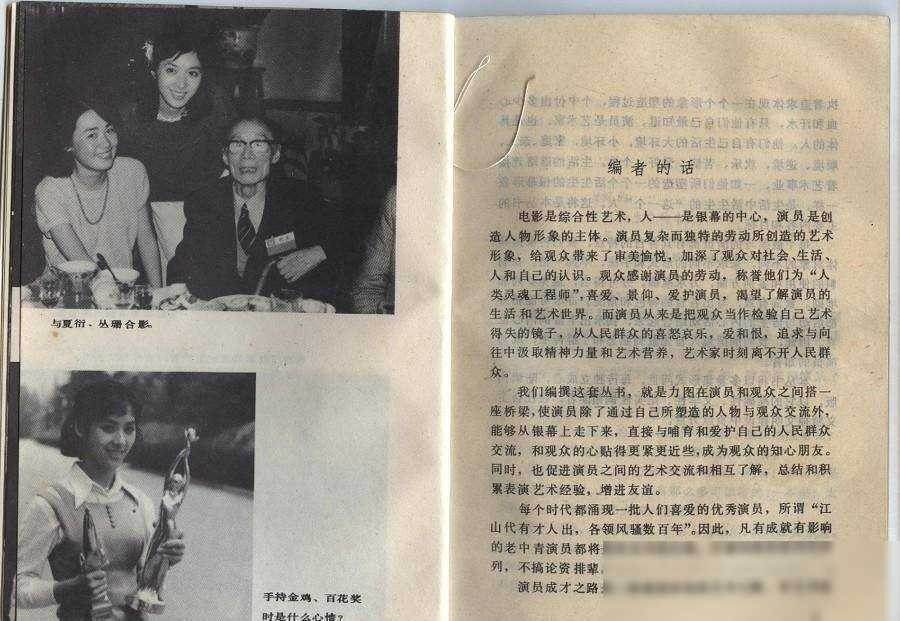 与夏衍、丛珊合影。
手持金鸡、百花奖
时是什么心情？
编者的话
电影是综合性艺术，人——是银幕的中心，演员是创
造人物形象的主体。演员复杂而独特的劳动所创造的艺术
形象，给观众带来了审美愉悦，加深了观众对社会、生活、
人和自己的认识。观众感谢演员的劳动，称誉他们为“人
类灵魂工程师”，喜爱、景仰、爱护演员，渴望了解演员的
生活和艺术世界。而演员从来是把观众当作检验自己艺术
得失的镜子，从人民群众的喜怒哀乐，爱和恨，追求与向
往中汲取精神力量和艺术营养，艺术家时刻离不开人民群
众。
我们编撰这套丛书，就是力图在演员和观众之间搭一
座桥梁，使演员除了通过自己所塑造的人物与观众交流外，
能够从银幕上走下来，直接与哺育和爱护自己的人民群众
交流，和观众的心贴得更紧更近些，成为观众的知心朋友。
同时，也促进演员之间的艺术交流和相互了解，总结和积
累表演艺术经验，增进友谊。
每个时代都涌现一批人们喜爱的优秀演员，所谓“江
山代有才人出，各领风骚数百年”。因此，凡有成就有影响
的老中青演员都将
列，不搞论资排辈。
演员成才之路